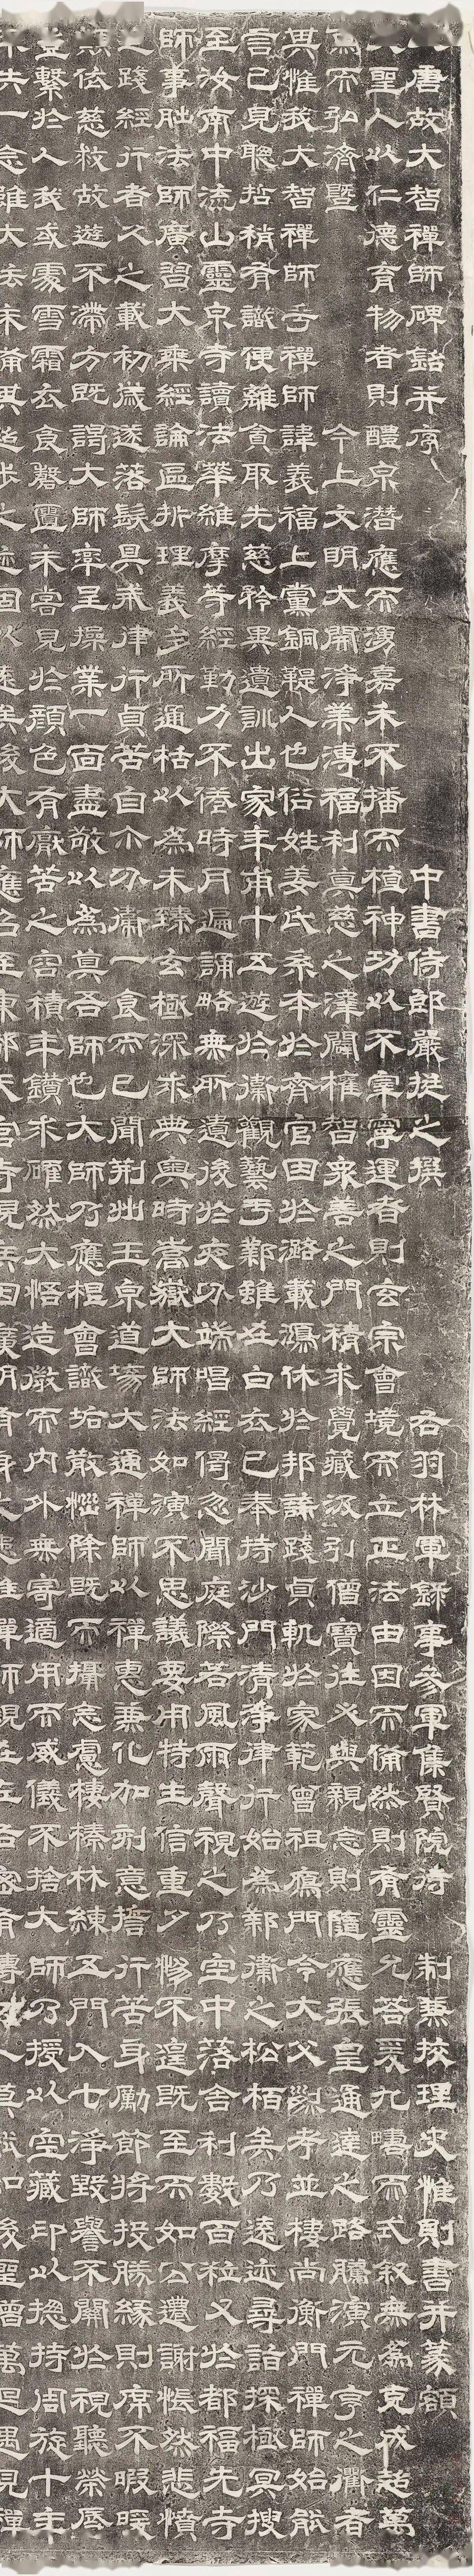 大唐故大智禪師碑銘并序 中書侍郎嚴挺之撰 右羽林軍錄事參軍集賢院待制兼挍理史惟則書并篆額
聖人以仁德育物者則醴泉潛應而湧嘉禾不播而植神功以不宰寧運者則玄宗會境而立正法由因而倫然則有靈允答爰九疇而式敘無為克成超萬
無而弘濟暨 今上文明大開淨業溥福利亶慈之澤闢權智衆善之門積求覺藏汲引僧寶往必與親念則隨應張皇通達之路騰演元亨之衢者
其惟我大智禪師乎禪師諱義福上黨銅鞮人也俗姓姜氏系本於齊官因於潞載鴻休於邦諜踐貞軌於家範曾祖鴈門令大父烈考並棲尚衡門禪師始能
言已見聰哲稍有識便離貪取先慈矜異遺訓出家年甫十五遊於衞觀藝于鄴雖在白衣已奉持沙門清淨律行始為鄴衞之松栢矣乃遠迹尋詣探極冥搜
至汝南中流山靈泉寺讀法華維摩等經勤力不倦時月遍誦略無所遺後於夜分端唱經偈忽聞庭際若風雨聲視之乃空中落舍利數百粒又於都福先寺
師事朏法師廣習大乘經論區析理義多所通括以為未臻玄極深求典奧時嵩嶽大師法如演不思議要用特生信重夕惕不遑既至而如公遷謝悵然悲憤
追踐經行者久之載初歲遂落髮具戒律行貞苦自亦分衞一食而已聞荊州玉泉道場大通禪師以禪惠兼化加刻意捨行苦身勵節將投勝緣則席不暇暖
願依慈救故遊不滯方既謁大師率呈操業一面盡敬以為真吾師也大師乃應根會識垢散惱除既而攝念慮棲榛林練五門入七淨毀譽不關於視聽榮辱
豈繫於人我或處雪霜衣食罄匱未嘗見於顔色有厭苦之容積年鑽求確然大悟造微而內外無寄適用而威儀不捨大師乃授以空藏印以摠持周旋十年
不失一念雖大法未備其超步之迹固以遠矣後大師應召至東都天宮寺現疾因廣明有身之患惟禪師親在左右密有傳付人莫能知後聖僧萬迴遇見禪